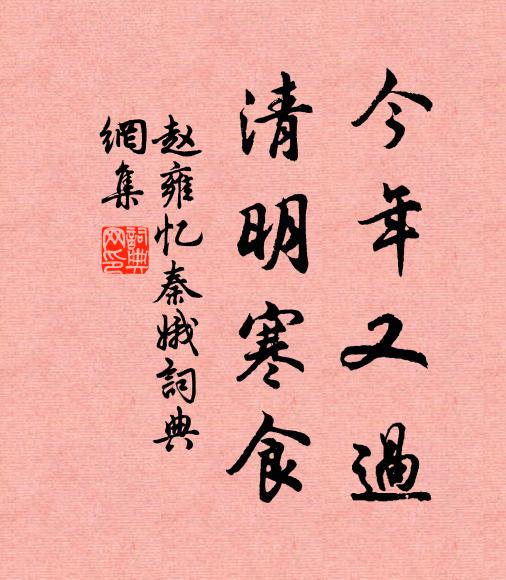 今年又過
清明寒食
赵雍忆秦娥詞典
網集
詞典
网印